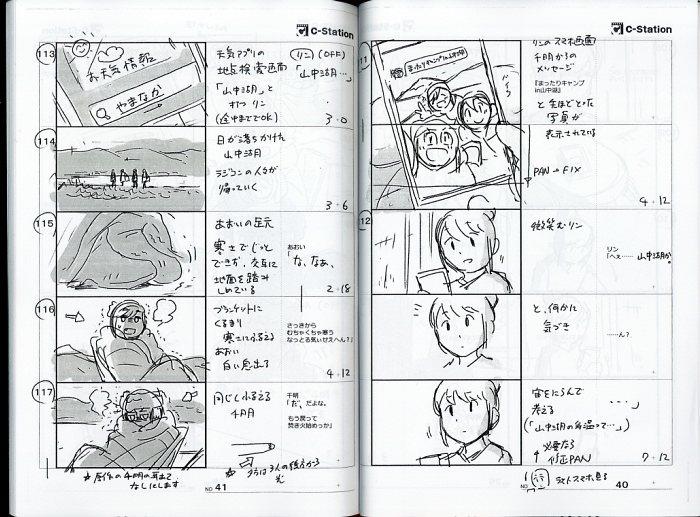 C-Station
113
お天気情報
やまなか
天気アプリの
地点検索画面
「山中湖」と
オワ リン
(途中まででOK)
(リン)(OFF)
「山中湖…」
3・0
114
日が落ちかけた
山中湖
ラジコンの人々が
帰っていく
3・6
115
あおいの足元
寒さでじっと
できず、交互に
地面を踏み
しめている
あおい
「な、なぁ、
2・18
116
ブランケットに
くるまり
寒さにふるえる
あおい
白い息出る
さっきから
むちゃくちゃ寒う
なっとる気ぃせえへん?」
4・12
117
同じくふるえる
千明
千明
「だ、だよな。
もう戻って
焚き火始めっか」
NO 41
C-Station
11
まったりキャンプin山中湖
リンのスマホ画面
千明からの
メッセージ
『まったりキャンプ
in山中湖』
と先ほどとった
写真が
表示されている
PAN→FIX
4・12
12
微笑むリン
リン
「へぇ……山中湖か。
と、何かに
気づき
……ん?
宙をにらんで
考える
(「山中湖の気温って…」)
…」
必要なら
修正PAN
7・12
NO 40